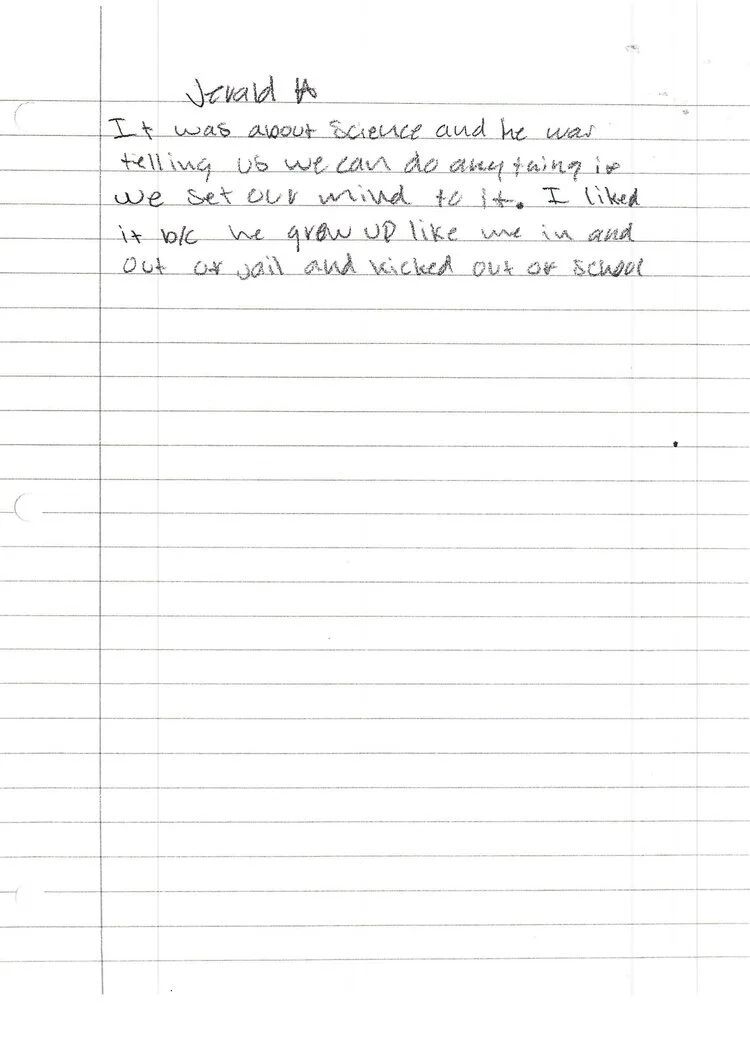 Jerald A
It was about science and he was
telling us we can do anything if
we set our mind to it. I liked
it b/c he grew up like me in and
out of jail and kicked out of school